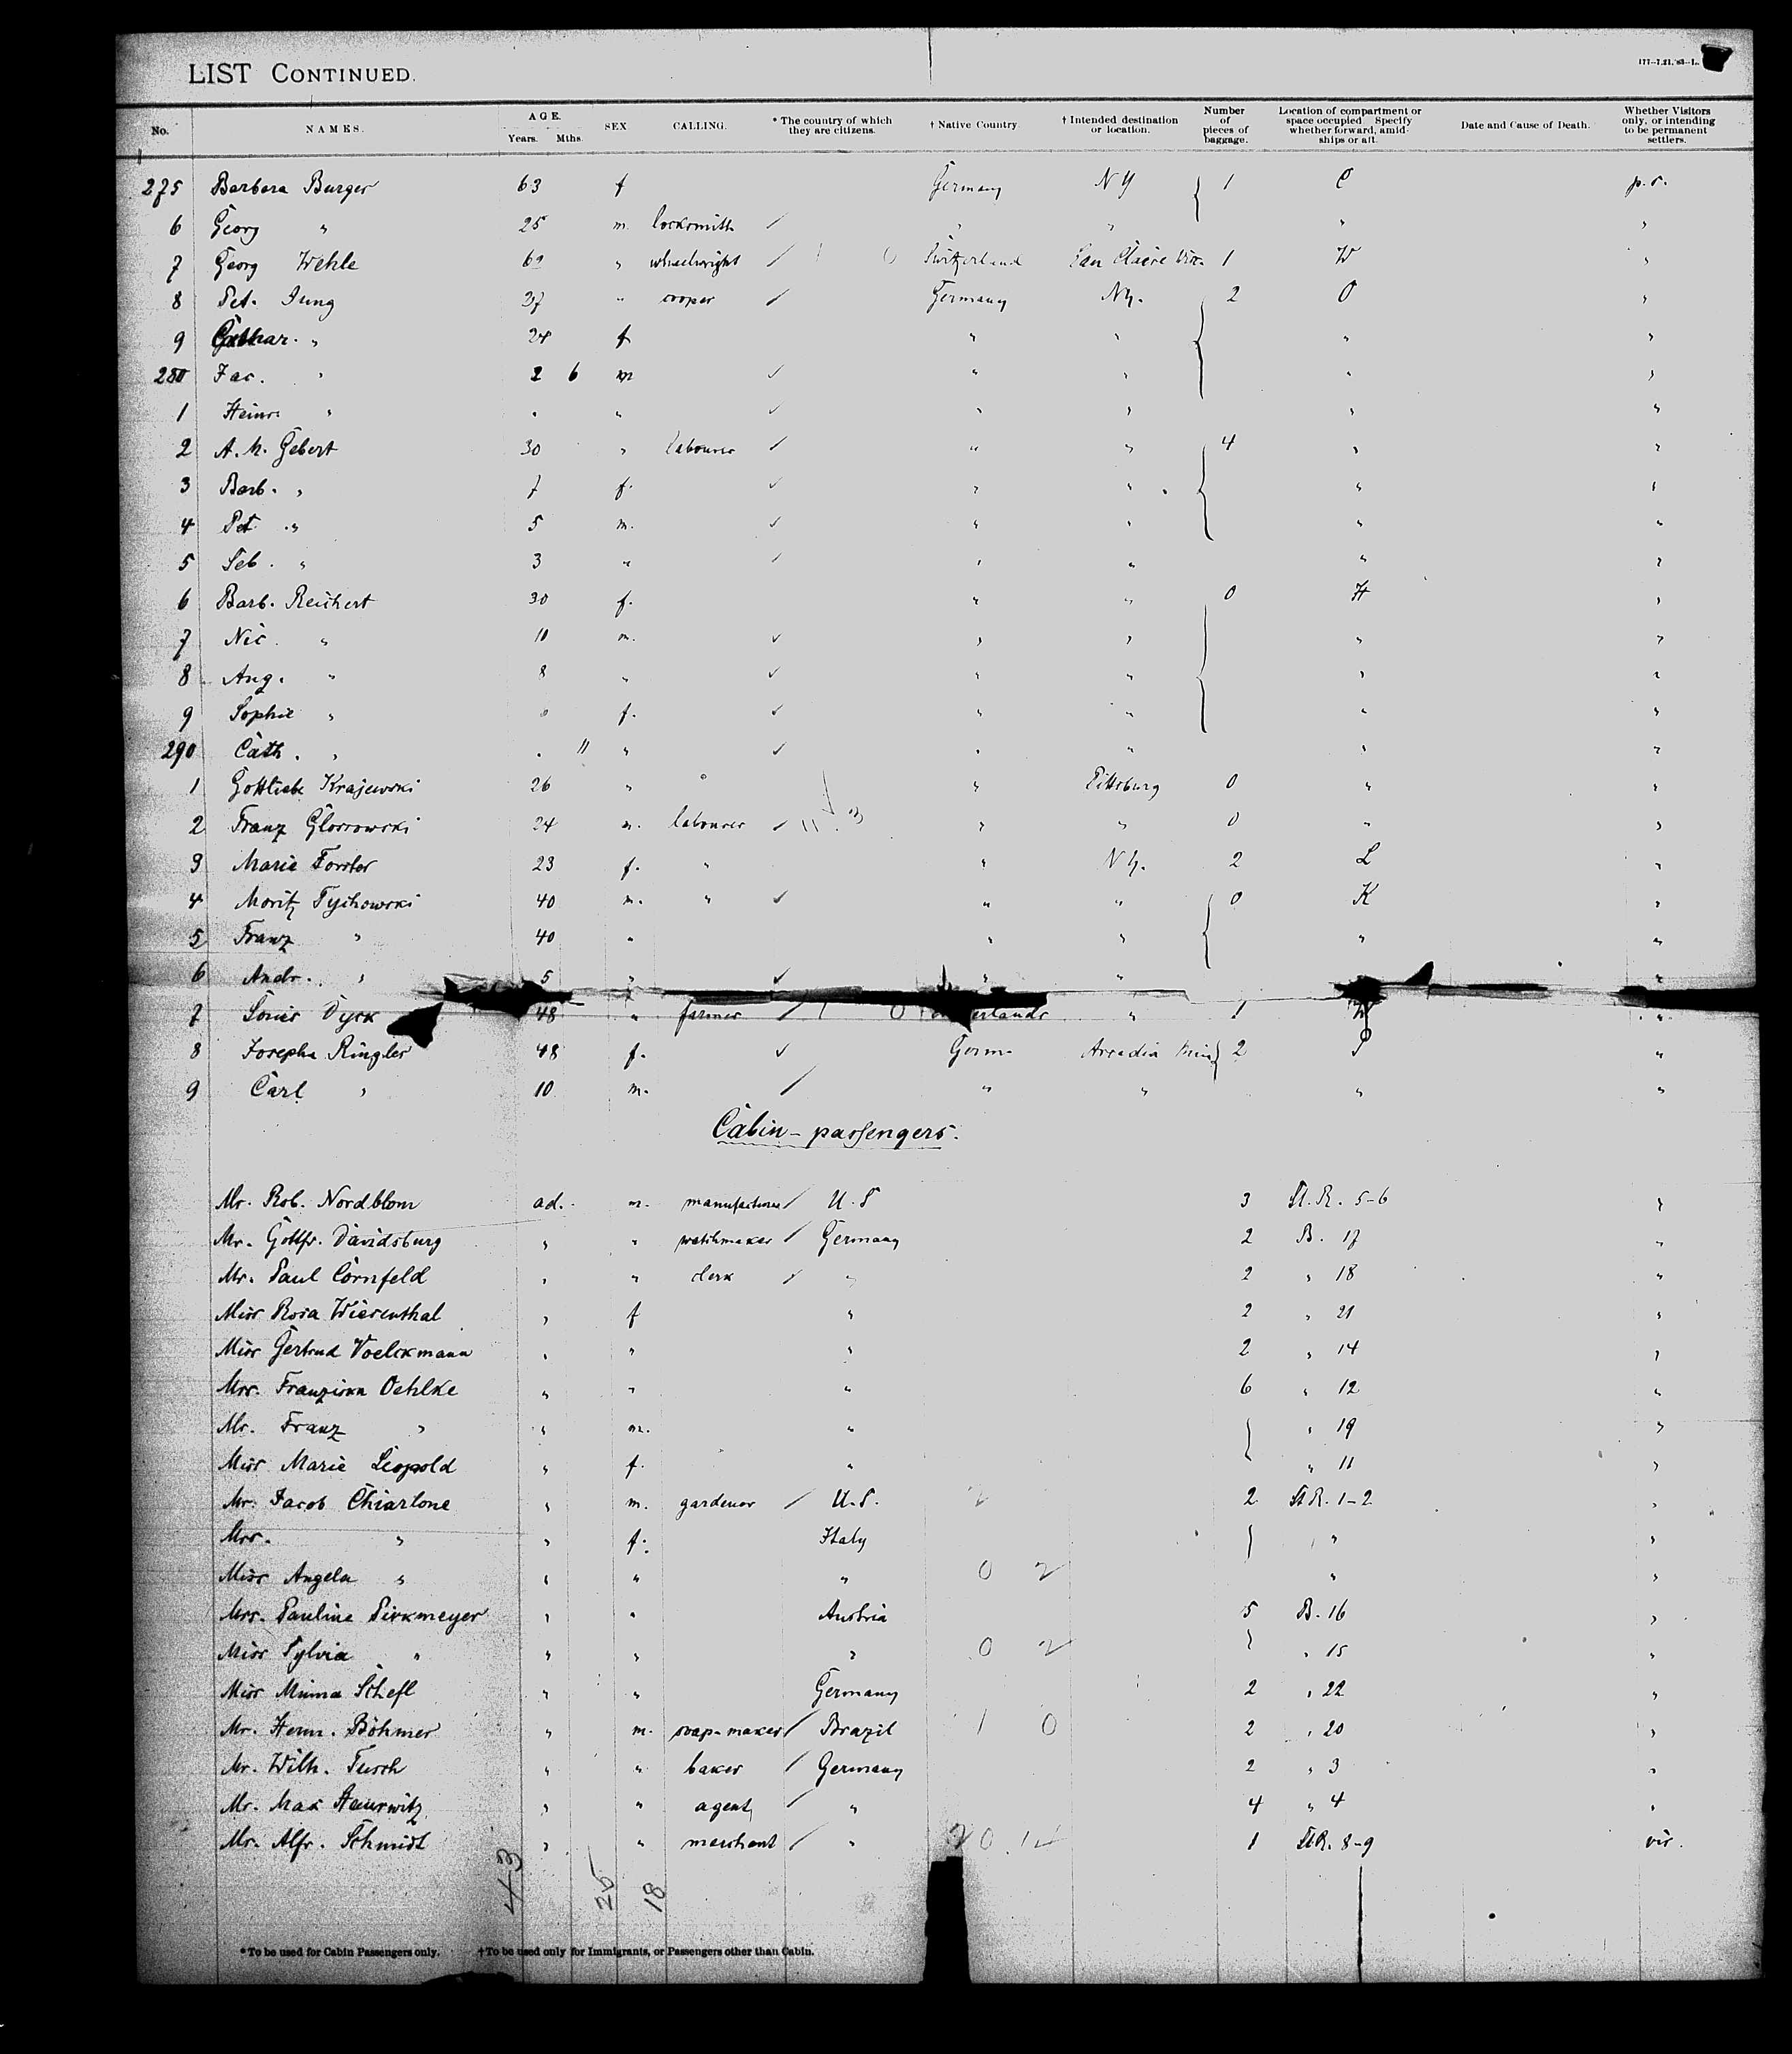 LIST CONTINUED.
No. NAMES. AGE. Years. Mths. SEX CALLING. * The country of which they are citizens. † Native Country. † Intended destination or location. Number of pieces of baggage. Location of compartment or space occupied. Specify whether forward, amidships or aft. Date and Cause of Death. Whether Visitors only, or intending to be permanent settlers.
275 Barbara Burger 63 f Germany NY 1 C p.s.
6 Georg " 25 m. locksmith " " " "
7 Georg Wehle 69 " wheelwright 1 0 Switzerland Eau Claire Wis. 1 W "
8 Pet. Jung 27 " cooper Germany NY. 2 O "
9 Cathar. " 24 f " " " "
280 Jac. " 2 6 m " " " "
1 Heinr. " " " " " " "
2 A. M. Gebert 30 " labourer " " 4 " "
3 Barb. " 7 f. " " " "
4 Pet. " 5 m. " " " "
5 Seb. " 3 " " " " "
6 Barb. Reichert 30 f. " " 0 H "
7 Nic. " 10 m. " " " "
8 Aug. " 8 " " " " "
9 Sophie " f. " " " "
290 Cath. " 11 " " " " "
1 Gottliebe Krajewski 26 " " Pittsburg 0 " "
2 Franz Glossowski 24 m. labourer " " 0 " "
3 Marie Forster 23 f. " " NY. 2 L "
4 Moritz Tychowski 40 m. " " " 0 K "
5 Franz " 40 " " " " "
6 Andr. " 5 " " " "
7 Louis Dyck 48 " farmer 1 0 erlands " 1 "
8 Josepha Ringler 48 f. Germ. Arcadia 2 "
9 Carl " 10 m. " " " "
Cabin-passengers.
Mr. Rob. Nordblom ad. m. manufacturer U.S 3 St. R. 5-6 "
Mr. Gottfr. Davidsburg " " watchmaker Germany 2 B. 17 "
Mr. Paul Cornfeld " " clerk " 2 " 18 "
Miss Rosa Wiesenthal " f " 2 " 21 "
Miss Gertrud Voelckmann " " " 2 " 14 "
Mrs. Franziska Oehlke " " " 6 " 12 "
Mr. Franz " " m. " " 19 "
Miss Marie Leopold " f. " " 11 "
Mr. Jacob Chiarlone " m. gardener U.S. 2 2 St R. 1-2 "
Mrs. " " f. Italy " "
Miss Angela " " " " 0 2 " "
Mrs. Pauline Pirkmeyer " " Austria 5 B. 16 "
Miss Sylvia " " " " 0 2 " 15 "
Miss Minna Schefl " " Germany 2 " 22 "
Mr. Herm. Böhmer " m. soap-maker Brazil 1 0 2 " 20 "
Mr. Wilh. Tusch " " baker Germany 2 " 3 "
Mr. Max Haurwitz " " agent " 4 " 4 "
Mr. Alfr. Schmidt " " merchant " 1 St R. 8-9 vis.
43 25 18
*To be used for Cabin Passengers only. †To be used only for Immigrants, or Passengers other than Cabin.